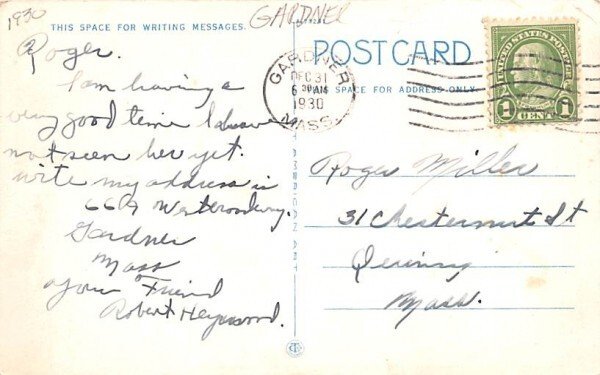 1930
GARDNER
THIS SPACE FOR WRITING MESSAGES.
POST CARD
THIS SPACE FOR ADDRESS ONLY.
GARDNER
DEC 31
6 30 AM
1930
MASS.
UNITED STATES POSTAGE
1 CENT 1
Roger.
I am having a
very good time I have
not seen her yet.
write my address is
Gardner
Mass
your Friend
Robert Heywood.
Roger Miller
31 Chesternut St
Mass.